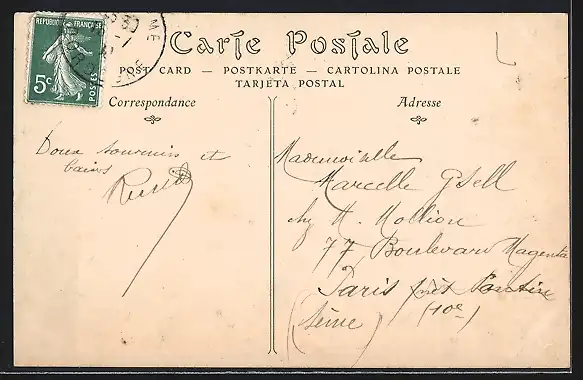 REPUBLIQUE FRANÇAISE
5c POSTES
Carte Postale
POST CARD — POSTKARTE — CARTOLINA POSTALE
TARJETA POSTAL
Correspondance
Adresse
Doux souvenirs et
baisers
Mademoiselle
Marcelle Gsell
chez M. Mollion
77 Boulevard Magenta
Paris près Pantin
(10e)
(Seine)